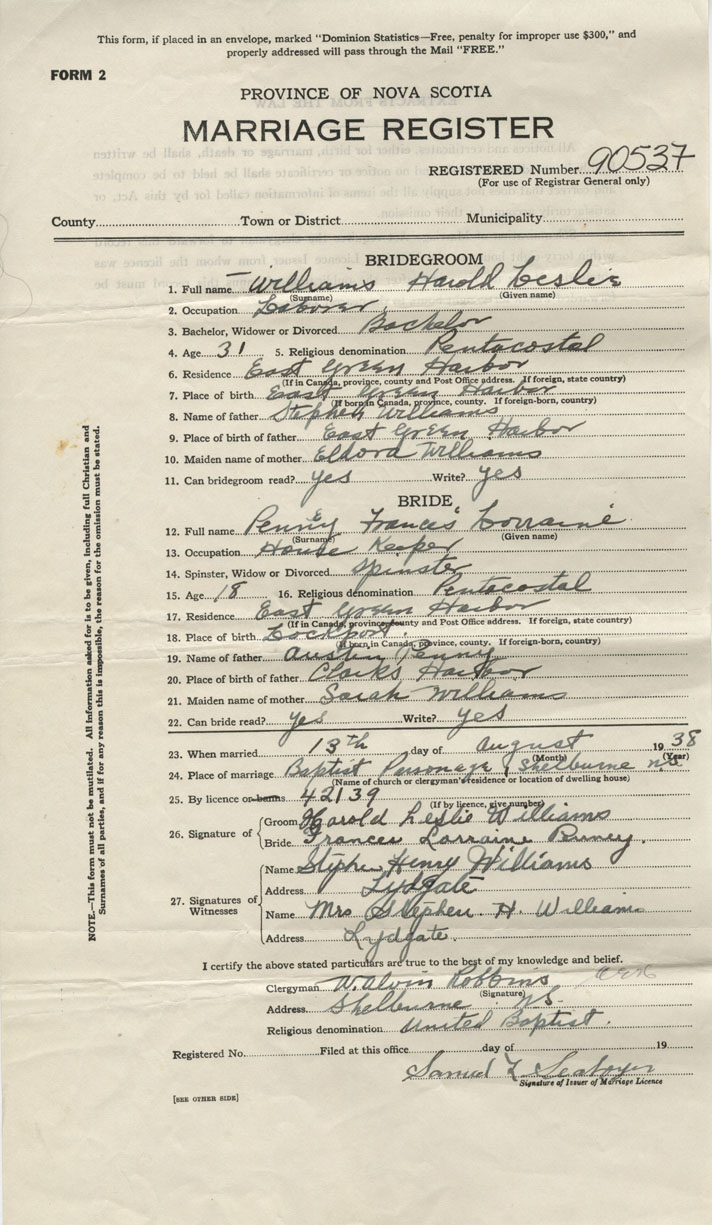 This form, if placed in an envelope, marked "Dominion Statistics—Free, penalty for improper use $300," and
properly addressed will pass through the Mail "FREE."
FORM 2
PROVINCE OF NOVA SCOTIA
MARRIAGE REGISTER
REGISTERED Number 90537
(For use of Registrar General only)
County Town or District Municipality
BRIDEGROOM
1. Full name Williams Harold Leslie
(Surname) (Given name)
2. Occupation Laborer
3. Bachelor, Widower or Divorced Bachelor
4. Age 31 5. Religious denomination Pentacostal
6. Residence East Green Harbor
(If in Canada, province, county and Post Office address. If foreign, state country)
7. Place of birth East Green Harbor
(If born in Canada, province, county. If foreign-born, country)
8. Name of father Stephen Williams
9. Place of birth of father East Green Harbor
10. Maiden name of mother Eldora Williams
11. Can bridegroom read? yes Write? yes
BRIDE
12. Full name Penney Francis Lorraine
(Surname) (Given name)
13. Occupation House Keeper
14. Spinster, Widow or Divorced Spinster
15. Age 18 16. Religious denomination Pentacostal
17. Residence East Green Harbor
(If in Canada, province, county and Post Office address. If foreign, state country)
18. Place of birth Lockport
(If born in Canada, province, county. If foreign-born, country)
19. Name of father Austin Penny
20. Place of birth of father Clarks Harbor
21. Maiden name of mother Sarah Williams
22. Can bride read? yes Write? yes
23. When married 13th day of August 1938
(Month) (Year)
24. Place of marriage Baptist Parsonage, Shelburne N.S.
(Name of church or clergyman's residence or location of dwelling house)
25. By licence or banns 42139
(If by licence, give number)
26. Signature of Groom Harold Leslie Williams
Bride Frances Lorraine Penney.
27. Signatures of Witnesses Name Stephen Henry Williams
Address Lydgate
Name Mrs Stephen. H. Williams
Address Lydgate.
I certify the above stated particulars are true to the best of my knowledge and belief.
Clergyman W. Alvin Robbins
(Signature)
Address Shelburne N.S.
Religious denomination United Baptist.
Registered No. Filed at this office day of 19
Samuel L Seaboyer
Signature of Issuer of Marriage Licence
[SEE OTHER SIDE]
NOTE.—This form must not be mutilated. All information asked for is to be given, including full Christian and
Surnames of all parties, and if for any reason this is impossible, the reason for the omission must be stated.